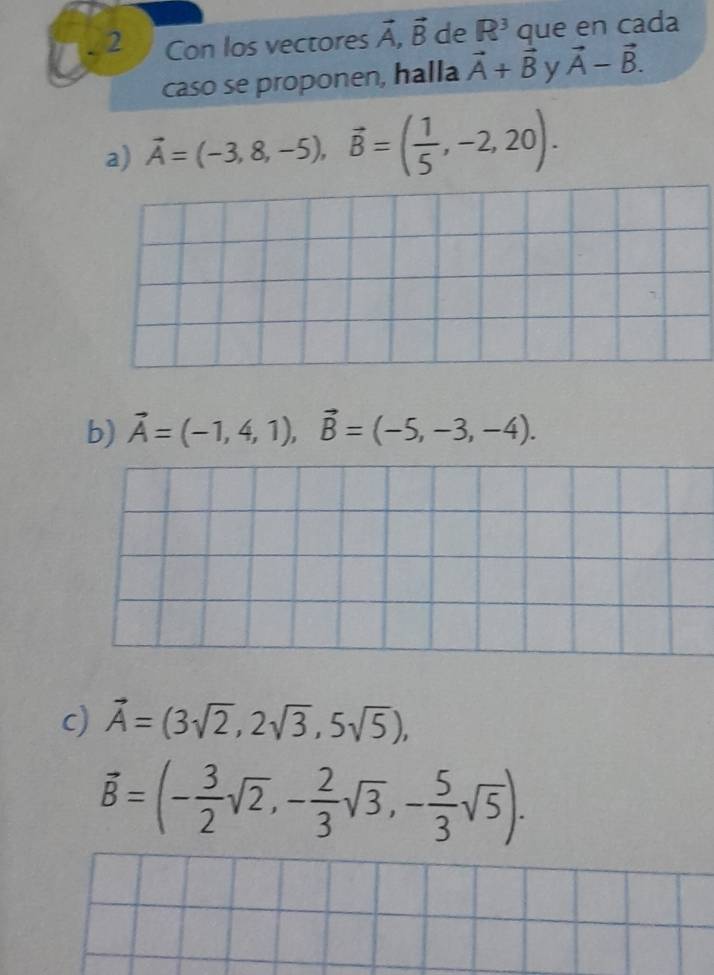 2 Con los vectores $\vec{A}$, $\vec{B}$ de $\mathbb{R}^3$ que en cada
caso se proponen, halla $\vec{A} + \vec{B}$ y $\vec{A} - \vec{B}$.
a) $\vec{A} = (-3, 8, -5)$, $\vec{B} = \left(\frac{1}{5}, -2, 20\right)$.
b) $\vec{A} = (-1, 4, 1)$, $\vec{B} = (-5, -3, -4)$.
c) $\vec{A} = (3\sqrt{2}, 2\sqrt{3}, 5\sqrt{5})$,
$\vec{B} = \left(-\frac{3}{2}\sqrt{2}, -\frac{2}{3}\sqrt{3}, -\frac{5}{3}\sqrt{5}\right)$.